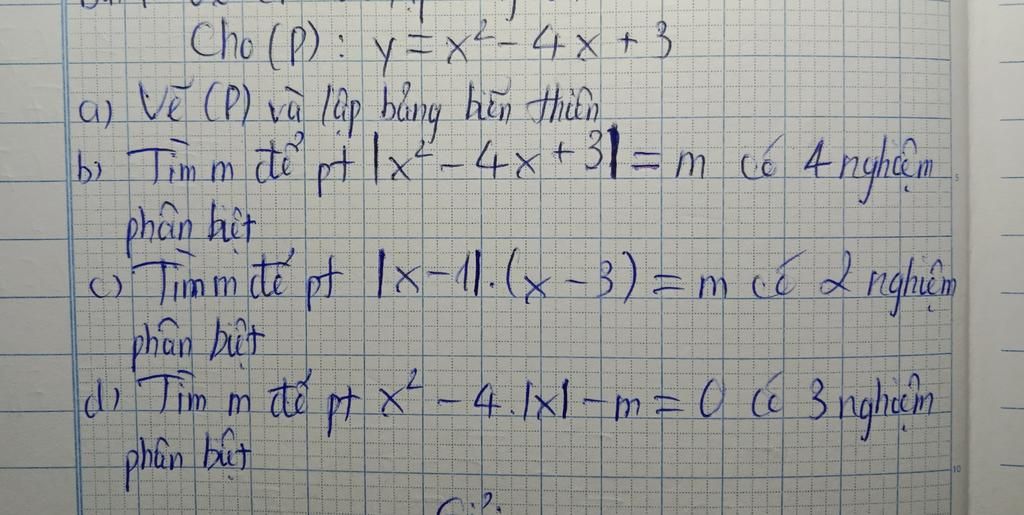 Cho (P): y = x² - 4x + 3
a) Vẽ (P) và lập bảng biến thiên
b) Tìm m để pt |x² - 4x + 3| = m có 4 nghiệm
phân biệt
c) Tìm m để pt |x - 1|.(x - 3) = m có 2 nghiệm
phân biệt
d) Tìm m để pt x² - 4.|x| - m = 0 có 3 nghiệm
phân biệt